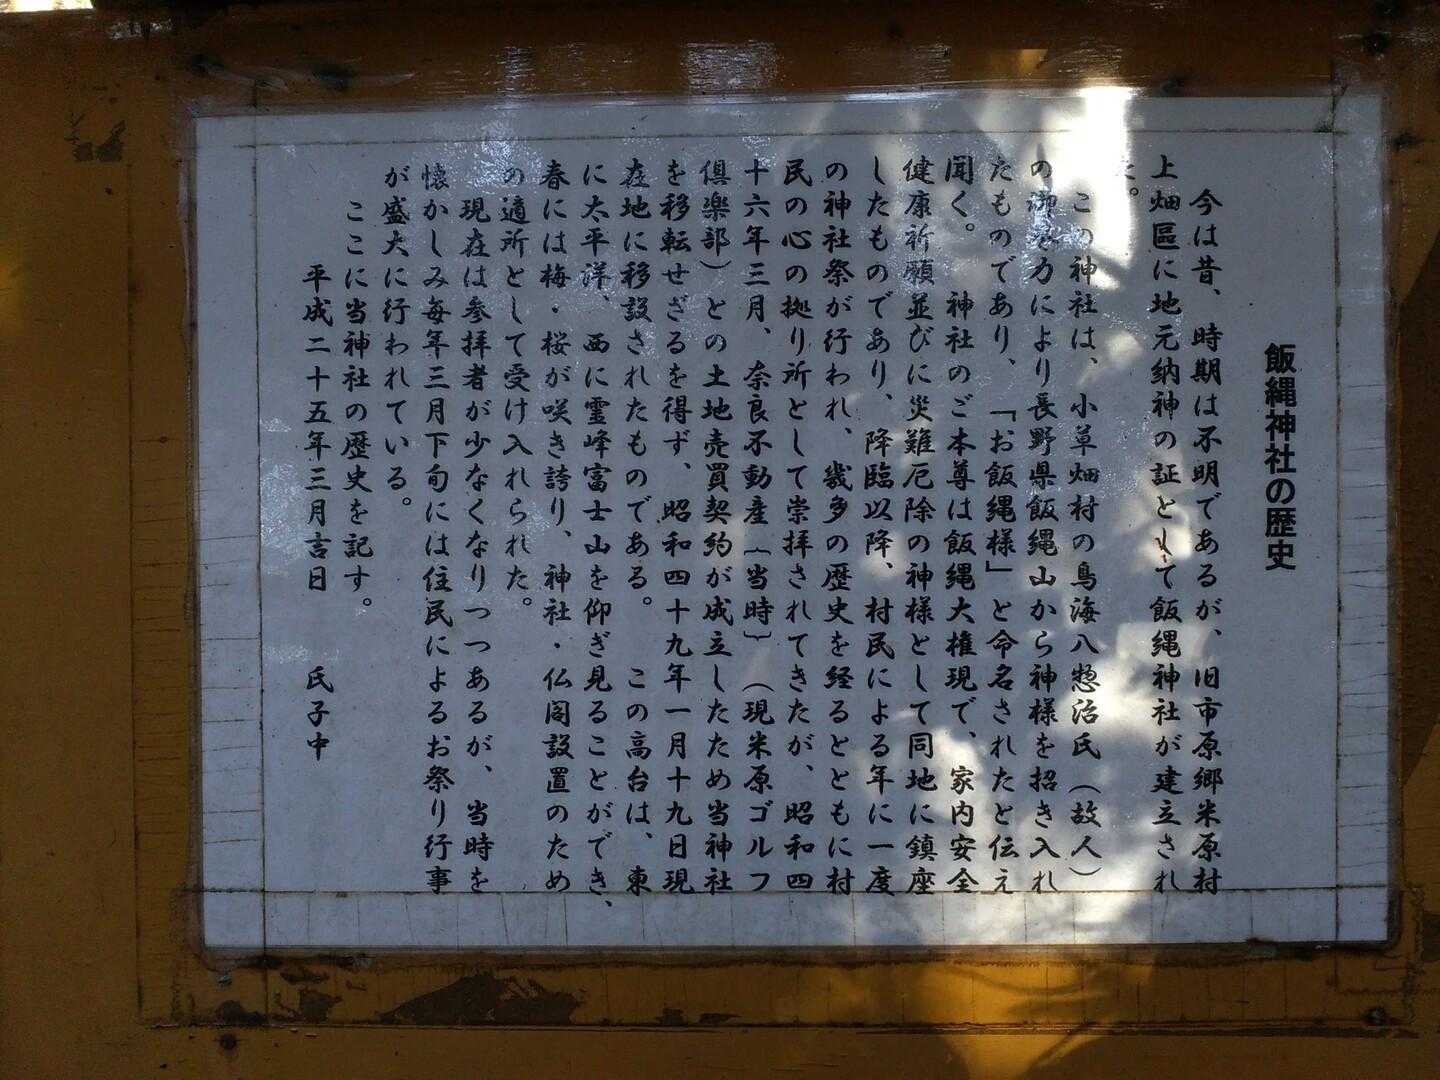 飯縄神社の歴史
今は昔、時期は不明であるが、旧市原郷米原村
上畑區に地元納神の証として飯縄神社が建立され
た。
この神社は、小草畑村の鳥海八惣治氏（故人）
の御尽力により長野県飯縄山から神様を招き入れ
たものであり、「お飯縄様」と命名されたと伝え
聞く。神社のご本尊は飯縄大権現で、家内安全
健康祈願並びに災難厄除の神様として同地に鎮座
したものであり、降臨以降、村民による年に一度
の神社祭が行われ、幾多の歴史を経るとともに村
民の心の拠り所として崇拝されてきたが、昭和四
十六年三月、奈良不動産｛当時｝（現米原ゴルフ
倶楽部）との土地売買契約が成立したため当神社
を移転せざるを得ず、昭和四十九年一月十九日現
在地に移設されたものである。この高台は、東
に太平洋、西に霊峰富士山を仰ぎ見ることができ、
春には梅・桜が咲き誇り、神社・仏閣設置のため
の適所として受け入れられた。
現在は参拝者が少なくなりつつあるが、当時を
懐かしみ毎年三月下旬には住民によるお祭り行事
が盛大に行われている。
ここに当神社の歴史を記す。
平成二十五年三月吉日　氏子中